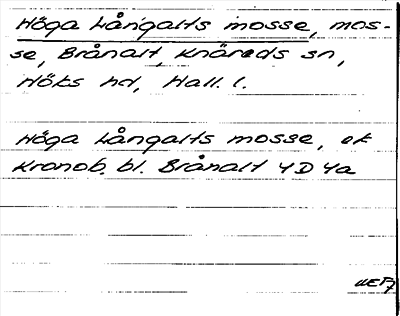 Höga Långalts mosse, mos-
se, Brånalt, Knäreds sn,
Höks hd, Hall. l.
Höga Långalts mosse, ek
Kronob. bl. Brånalt 4D 4a